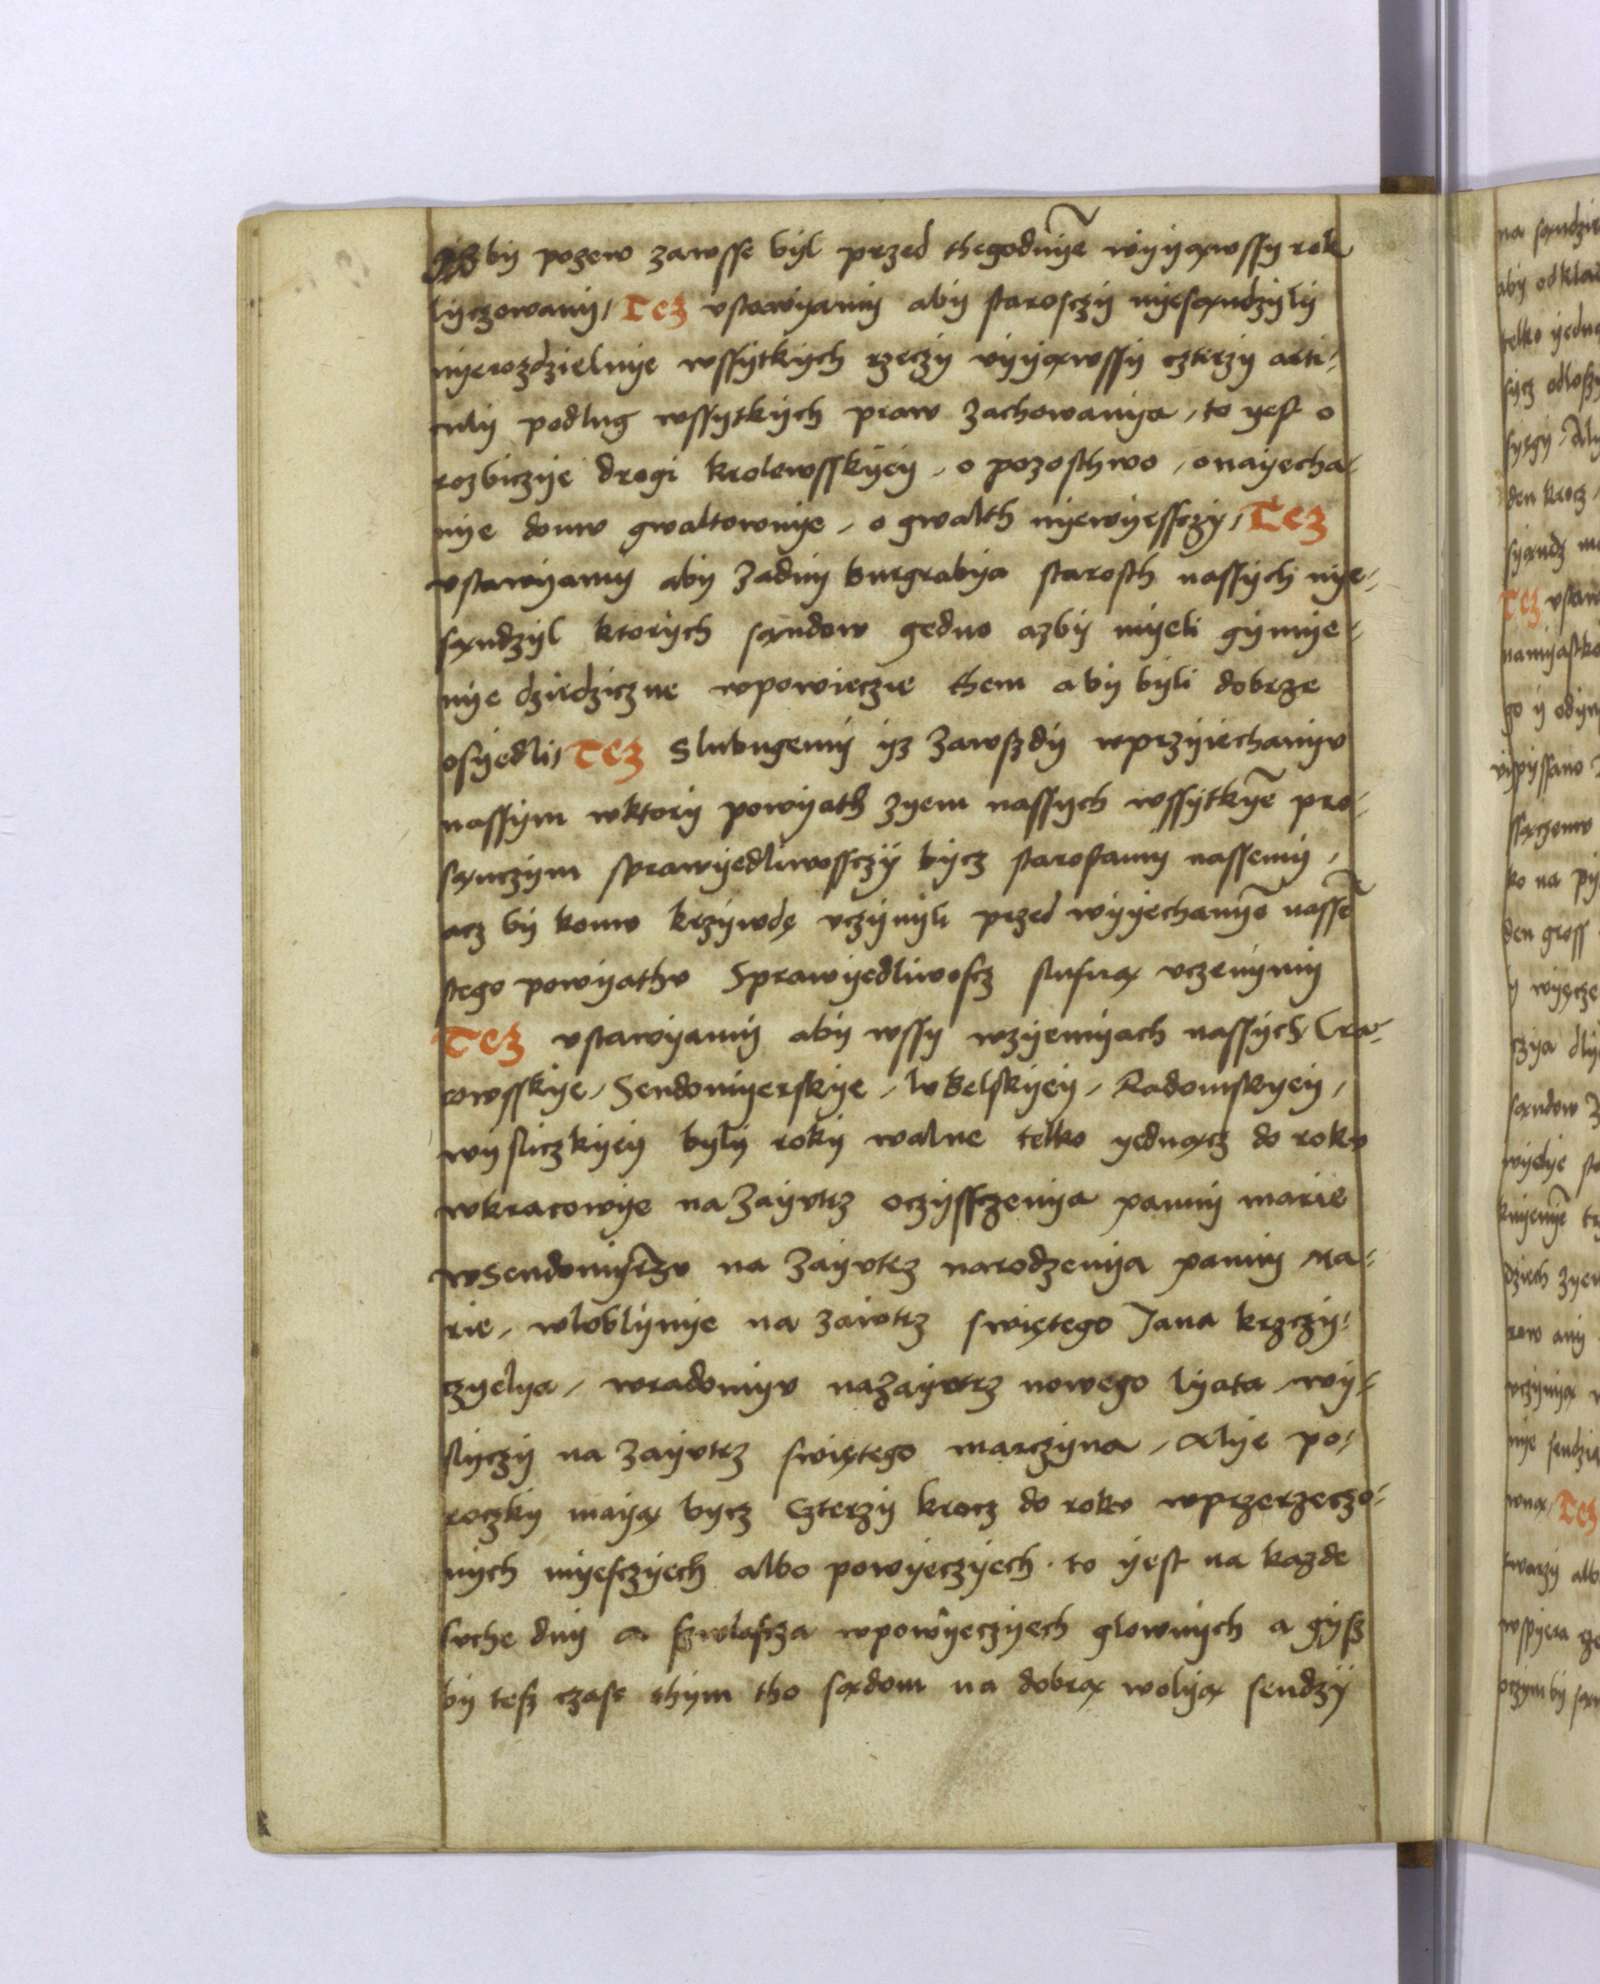 by pozew zawsse byl przed thegodnỹe wyyąwssy rok
lyczowany / Tez vstawyamy aby starosczy nyesąndzyly
nyerozdzielnye wssytkych rzeczy vyyąwssy czterzy arti-
culy podlug wssytkych praw zachowanya / to yest o
rozbiczye drogi krolewsskyey / o pozosthwo / o nayecha-
nye domv gwaltownye / o gwalth nyewyessczy / Tez
vstawyamy aby zadny burgrabya starosth nassych nye-
sąndzyl ktorych sąndow gedno azby myeli gymye-
nye dziedziczne wpowieczie them aby byli dobrze
osyedli / Tez Slubugemy yz zawszdy wprzyiechanyv
nassym wktory powyath zyem nassych wssytkyẽ pro-
sąnczym sprawyedliwossczy bycz starostamy nassemy /
acz by komv krzywdę vczynyli przed wyyechanyẽ nassẽ
stego powyathv Sprawyedliwoscz slusną vczenymy
Tez vstawyamy aby wssy wzyemyach nassych Cra-
cowsskye / Sendomyerskye / lvbelskyey / Radomskyey /
wysliczkyey byly roky walne telko yednącz do rokv
wkracowye na zayvtrz oczyssczenya panny marie
wSendomyrzv na zayvtrz narodzenya panny Ma-
rie / wlvblynye na zaivtrz swiętego Jana krzczy-
czyelya / wradomyv nazayvtrz nowego lyata wy-
slyczy na zayvtrz swiętego marczyna / Alye po-
roczky mayą bycz czterzy krocz do rokv wprzerzeczo-
nych myesczyech albo powyeczyech . to yest na kazde
suche dny a szwlascza wpowyeczyech glownych a gysz
by tesz czasr thym tho sądom na dobrą wolyą sendzy
na sąndzie
aby odklad
telko yedną
sycz odloszy
den krocz
Tez vstaw
namyastko
go y odym
vypyssano
ko na py
den gross
y wyęcze
czya dly
sąndow
wyelye st
dziech zyem
row any
vczynyą
nye sendzie
Tez
wspyera